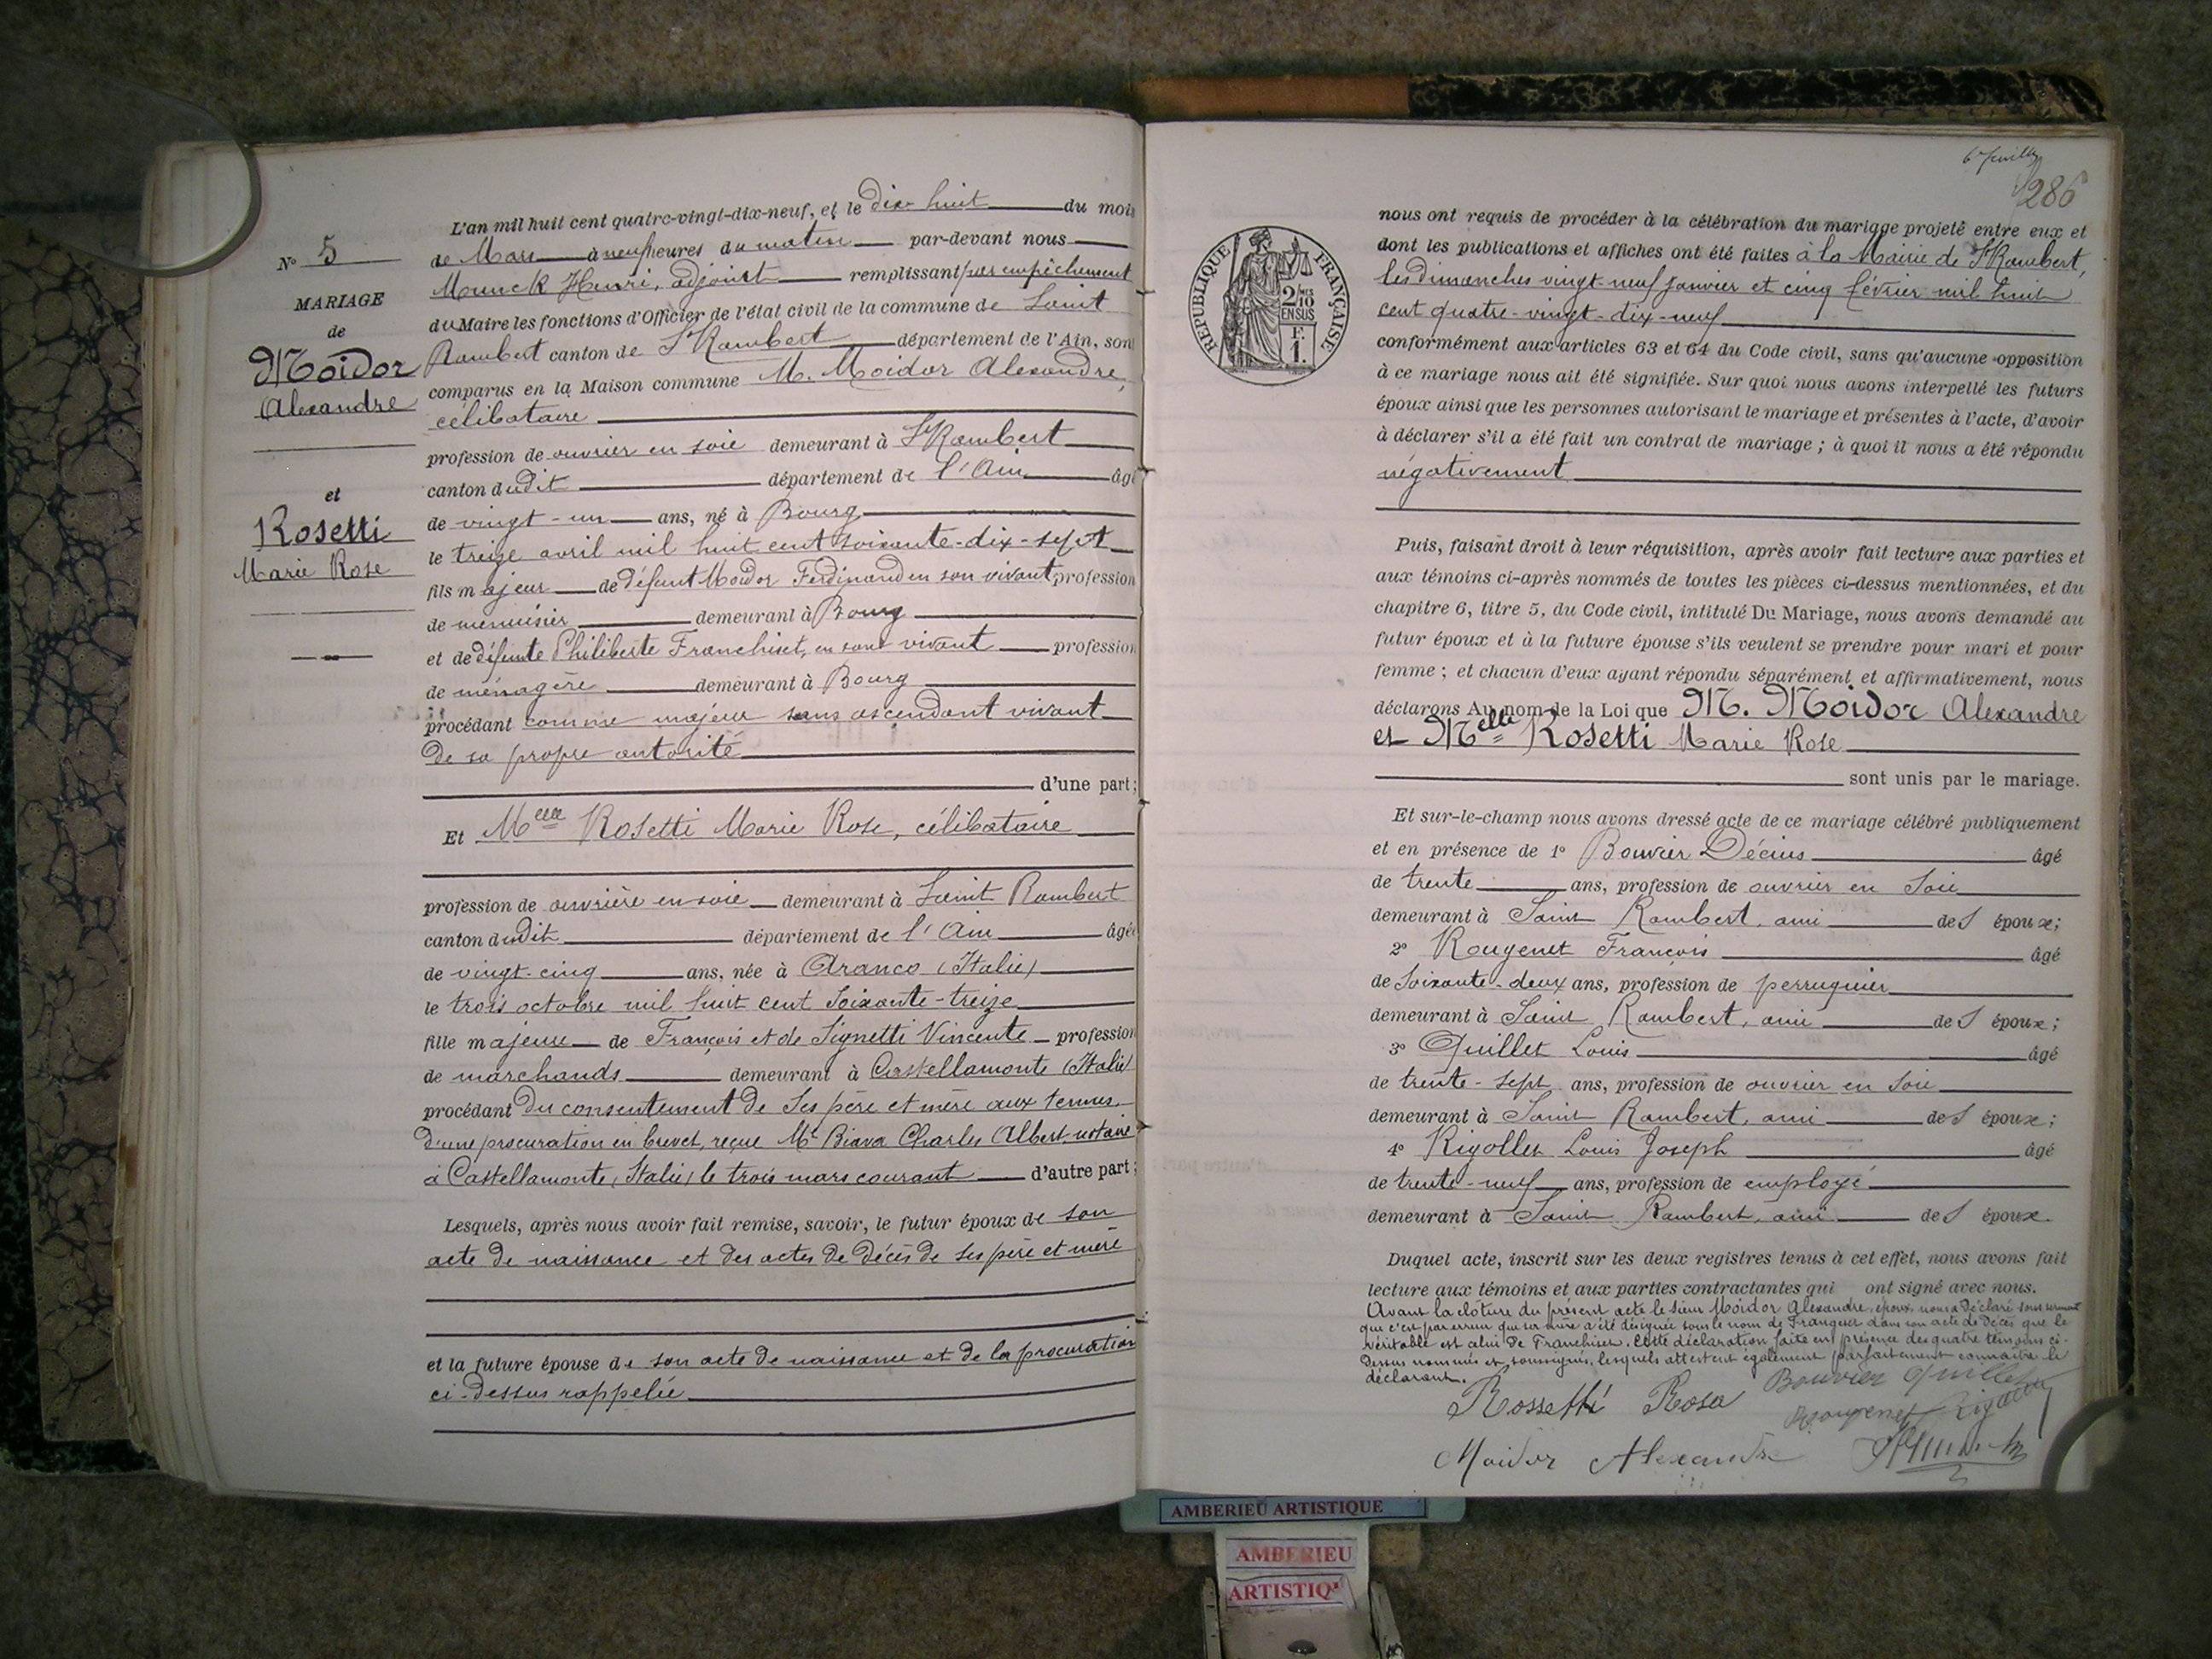 N° 5
MARIAGE
de
Moidor
Alexandre
et
Rosetti
Marie Rose
L'an mil huit cent quatre-vingt-dix-neuf, et le dix huit du mois
de Mars à neuf heures du matin par-devant nous
Munck Henri, adjoint remplissant par empêchement
du Maire les fonctions d'Officier de l'état civil de la commune de Saint
Rambert canton de St Rambert département de l'Ain, sont
comparus en la Maison commune M. Moidor Alexandre,
célibataire
profession de ouvrier en soie demeurant à St Rambert
canton dudit département de l'Ain âgé
de vingt-un ans, né à Bourg
le treize avril mil huit cent soixante-dix-sept
fils majeur de défunt Moidor Ferdinand en son vivant profession
de menuisier demeurant à Bourg
et de défunte Philiberte Franchiset, en sont vivant profession
de ménagère demeurant à Bourg
procédant comme majeur sans ascendant vivant
de sa propre autorité
d'une part;
Et Melle Rosetti Marie Rose, célibataire
profession de ouvrière en soie demeurant à Saint Rambert
canton dudit département de l'Ain âgée
de vingt-cinq ans, née à Aranco (Italie)
le trois octobre mil huit cent soixante-treize
fille majeure de François et de Signetti Vincente profession
de marchands demeurant à Castellamonte (Italie)
procédant du consentement de ses père et mère aux termes
d'une procuration en brevet, reçue Me Biava Charles Albert, notaire
à Castellamonte, (Italie) le trois mars courant d'autre part;
Lesquels, après nous avoir fait remise, savoir, le futur époux de son
acte de naissance et des actes de décès de ses père et mère
et la future épouse de son acte de naissance et de la procuration
ci-dessus rappelée
6e feuille
286
REPUBLIQUE FRANÇAISE
2/10 MES
EN SUS
F.
1.
nous ont requis de procéder à la célébration du mariage projeté entre eux et
dont les publications et affiches ont été faites à la Mairie de St Rambert,
les dimanches vingt-neuf janvier et cinq février mil huit
cent quatre-vingt-dix-neuf
conformément aux articles 63 et 64 du Code civil, sans qu'aucune opposition
à ce mariage nous ait été signifiée. Sur quoi nous avons interpellé les futurs
époux ainsi que les personnes autorisant le mariage et présentes à l'acte, d'avoir
à déclarer s'il a été fait un contrat de mariage; à quoi il nous a été répondu
négativement
Puis, faisant droit à leur réquisition, après avoir fait lecture aux parties et
aux témoins ci-après nommés de toutes les pièces ci-dessus mentionnées, et du
chapitre 6, titre 5, du Code civil, intitulé Du Mariage, nous avons demandé au
futur époux et à la future épouse s'ils veulent se prendre pour mari et pour
femme; et chacun d'eux ayant répondu séparément et affirmativement, nous
déclarons Au nom de la Loi que M. Moidor Alexandre
et Melle Rosetti Marie Rose
sont unis par le mariage.
Et sur-le-champ nous avons dressé acte de ce mariage célébré publiquement
et en présence de 1° Bouvier Décius âgé
de trente ans, profession de ouvrier en soie
demeurant à Saint Rambert, ami des époux;
2° Rougenet François âgé
de soixante-deux ans, profession de perruquier
demeurant à Saint Rambert, ami des époux;
3° Quillet Louis âgé
de trente-sept ans, profession de ouvrier en soie
demeurant à Saint Rambert, ami des époux;
4° Rigollet Louis Joseph âgé
de trente-neuf ans, profession de employé
demeurant à Saint Rambert, ami des époux.
Duquel acte, inscrit sur les deux registres tenus à cet effet, nous avons fait
lecture aux témoins et aux parties contractantes qui ont signé avec nous.
Avant la clôture du présent acte le sieur Moidor Alexandre, époux, nous a déclaré sous serment
que c'est par erreur que sa mère a été désignée sous le nom de Frangeset dans son acte de décès que le
véritable est celui de Franchiset. Cette déclaration faite en présence des quatre témoins ci-
dessus nommés et soussignés, lesquels attestent également parfaitement connaître le
déclarant.
Rossetti Rosa Bouvier Quillet
Rougenet Rigollet
Moidor Alexandre
AMBERIEU ARTISTIQUE
AMBERIEU
ARTISTIQ